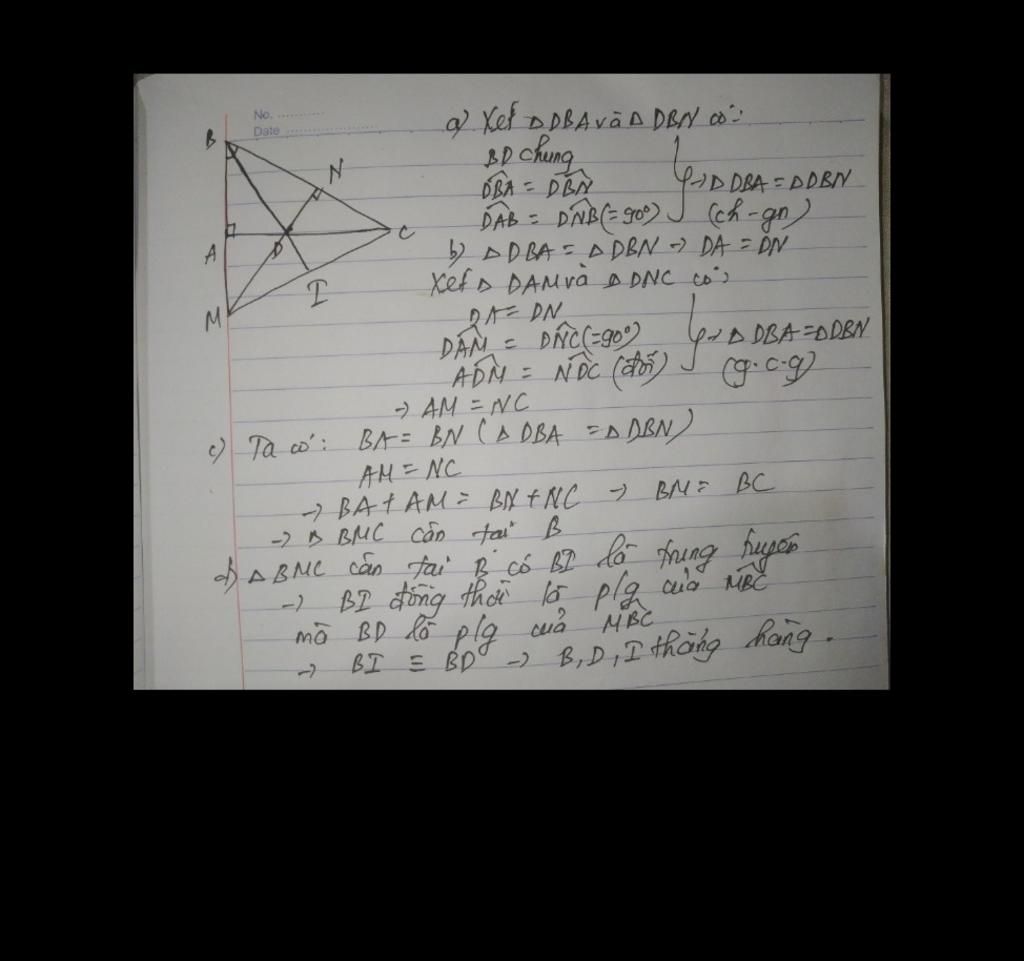 No. ...........
Date ......................
B
N
A
D
C
I
M
a) Xét △ DBA và △ DBN có:
BD chung
\widehat{DBA} = \widehat{DBN}
\widehat{DAB} = \widehat{DNB} (=90°)
→ △ DBA = △ DBN
(ch - gn)
b) △ DBA = △ DBN → DA = DN
Xét △ DAM và △ DNC có:
DA = DN
\widehat{DAM} = \widehat{DNC} (=90°)
\widehat{ADM} = \widehat{NDC} (đối)
→ △ DBA = △ DBN
(g.c.g)
→ AM = NC
c) Ta có: BA = BN (△ DBA = △ DBN)
AM = NC
→ BA + AM = BN + NC → BM = BC
→ △ BMC cân tại B
d) △ BMC cân tại B có BI là trung tuyến
→ BI đồng thời là p/g của \widehat{MBC}
mà BD là p/g của \widehat{MBC}
→ BI ≡ BD → B, D, I thẳng hàng.